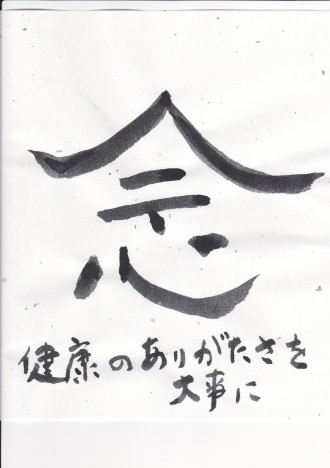 念
健康のありがたさを
大事に